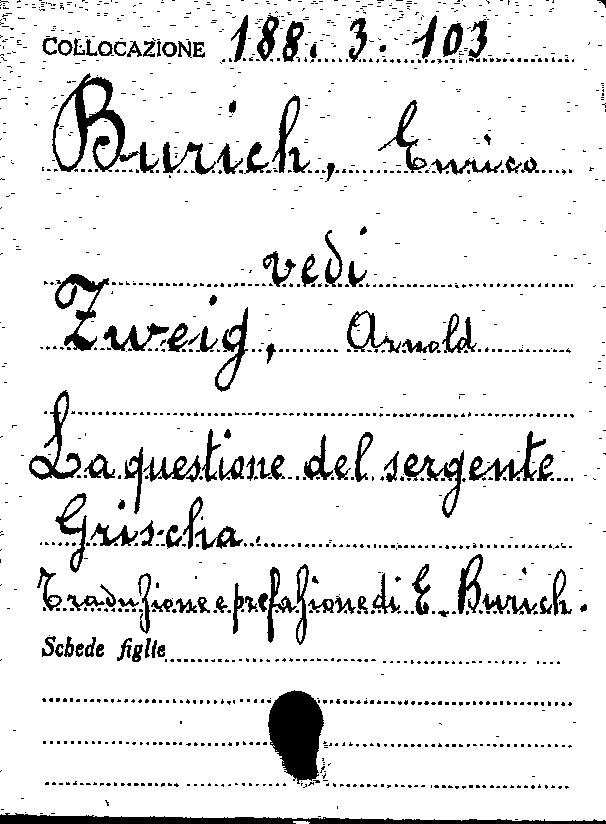 COLLOCAZIONE 188. 3. 103
Burich, Enrico
vedi
Zweig, Arnold
La questione del sergente
Grischa.
Traduzione e prefazione di E. Burich.
Schede figlie